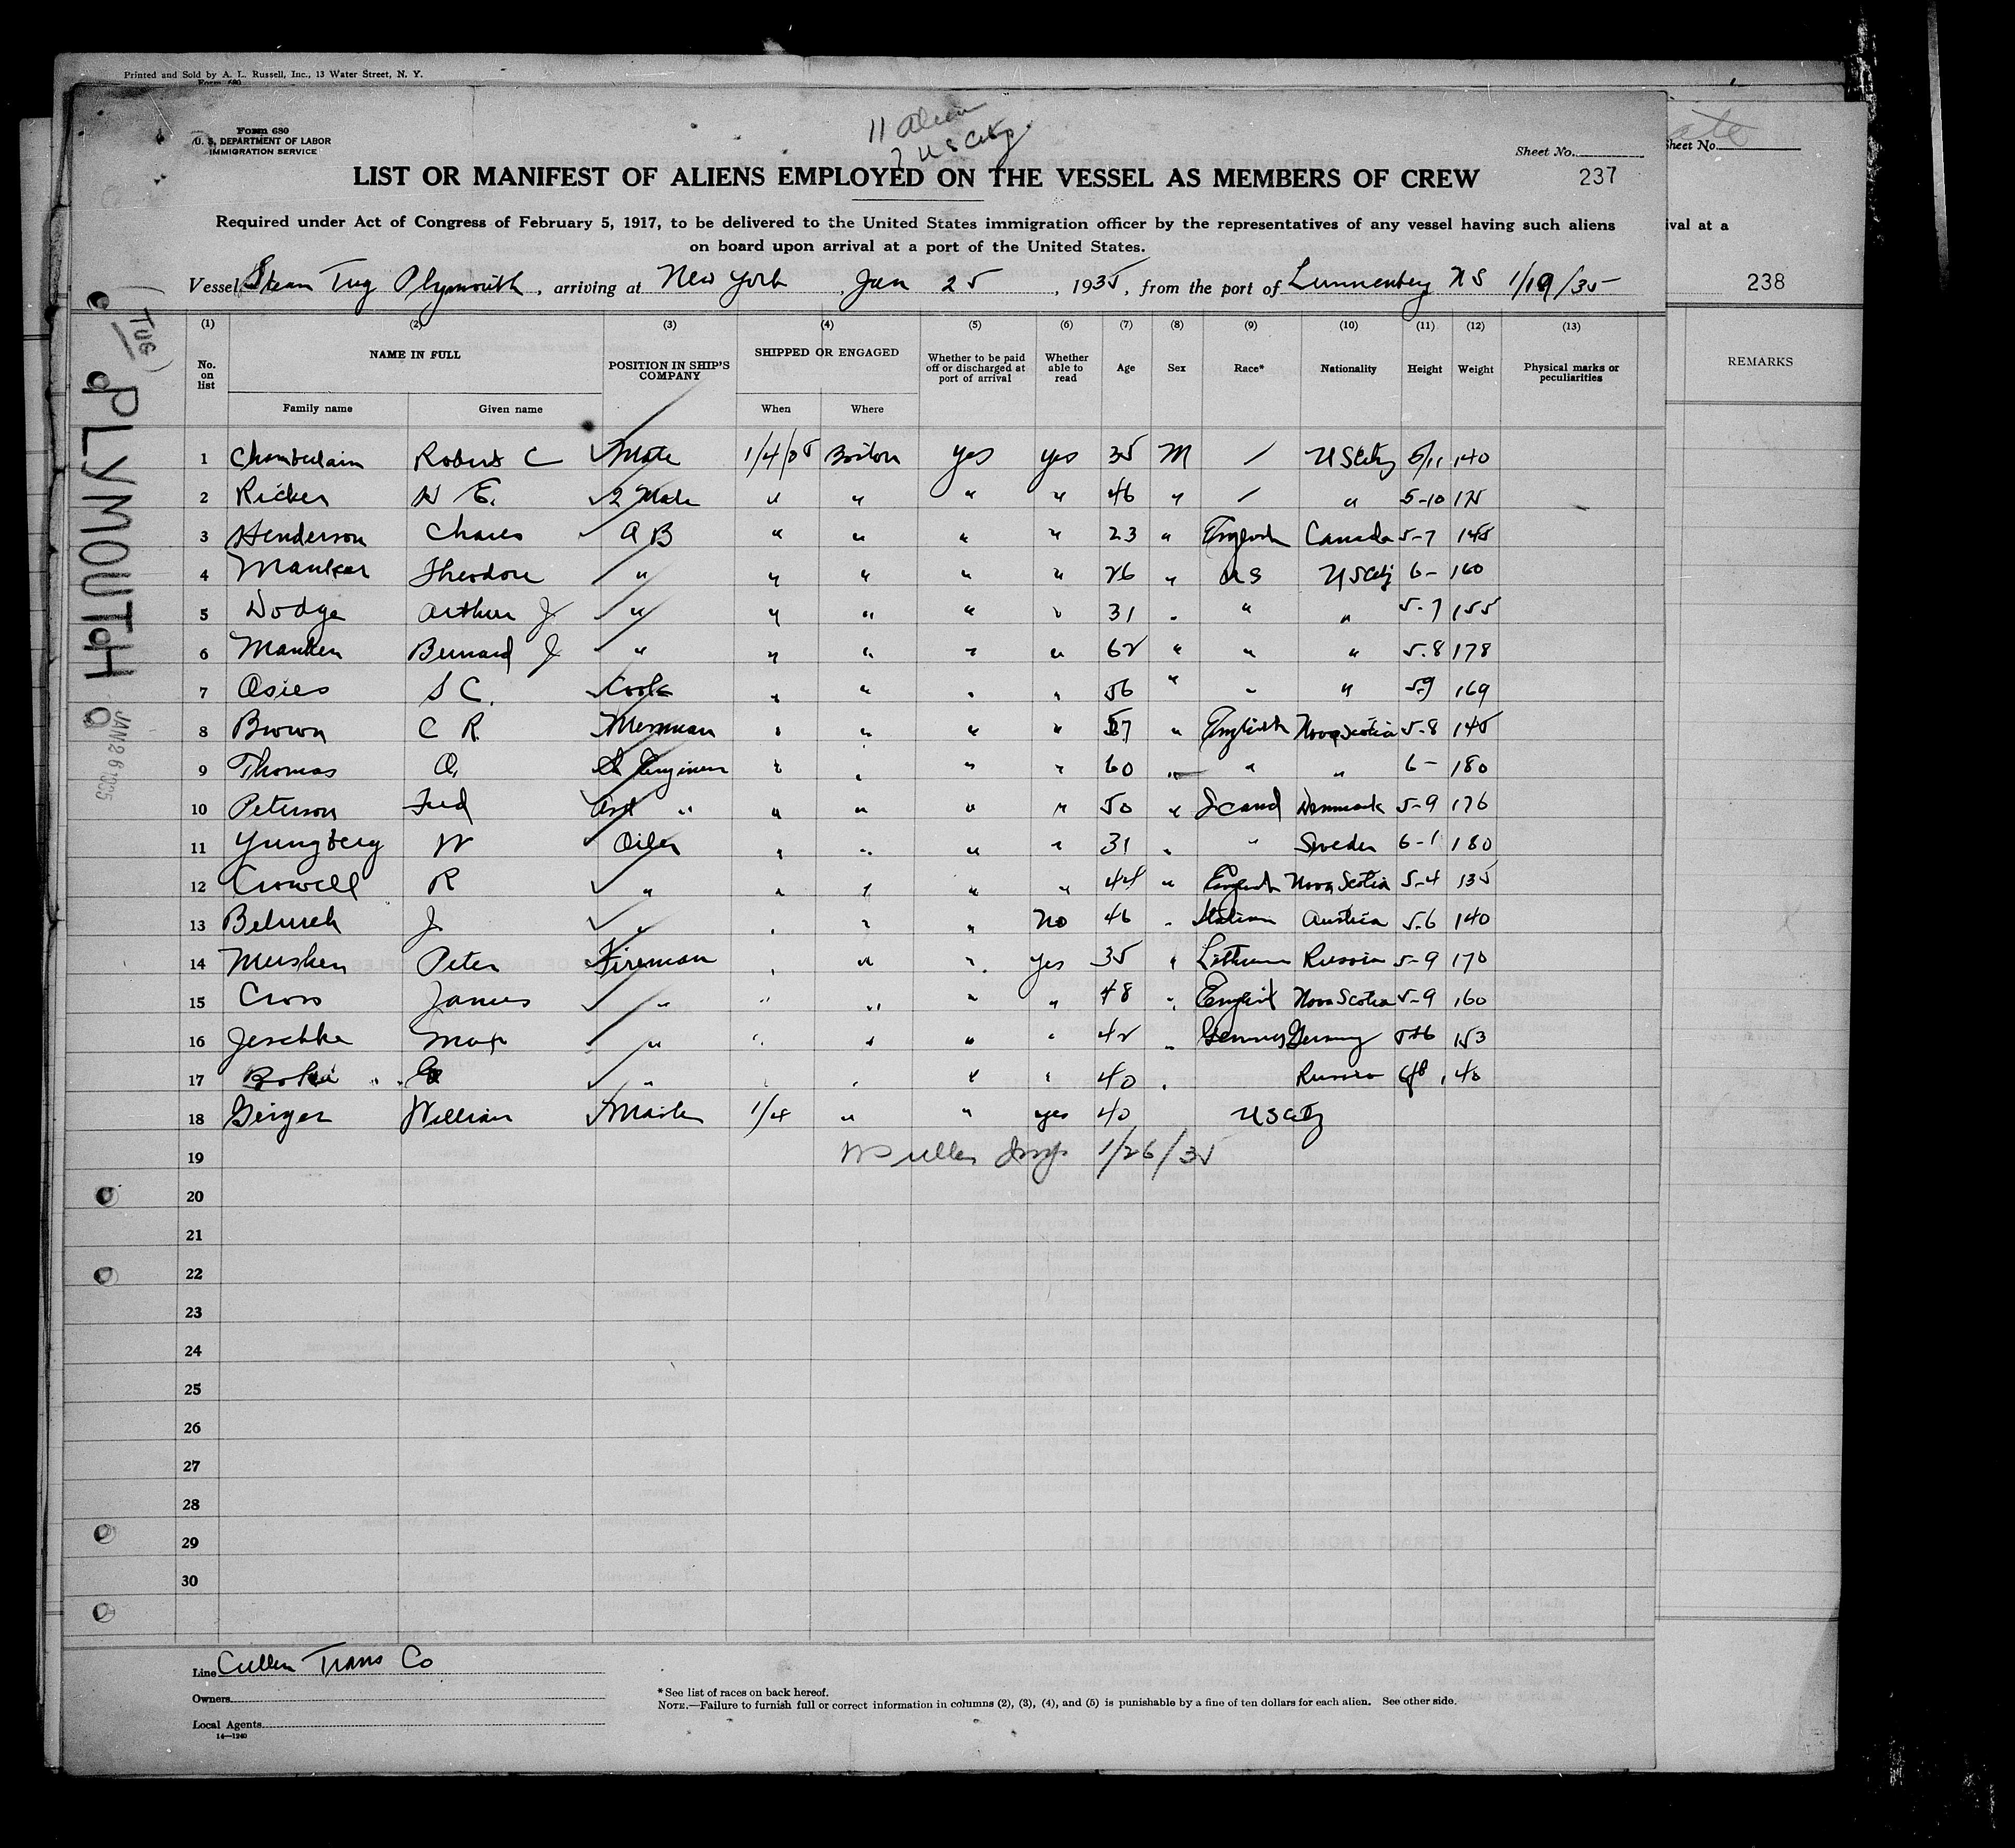 Printed and Sold by A. L. Russell, Inc., 13 Water Street, N. Y.
Form 680
Form 680
U. S. DEPARTMENT OF LABOR
IMMIGRATION SERVICE
11 Alien
7 US Citz
Sheet No.
Sheet No.
LIST OR MANIFEST OF ALIENS EMPLOYED ON THE VESSEL AS MEMBERS OF CREW
237
Required under Act of Congress of February 5, 1917, to be delivered to the United States immigration officer by the representatives of any vessel having such aliens
on board upon arrival at a port of the United States.
ival at a
Vessel Steam Tug Plymouth, arriving at New York, Jan 25, 1935, from the port of Lunnenberg NS 1/19/35
238
(TUG) PLYMOUTH
JAN 26 1935
(1) (2) (3) (4) (5) (6) (7) (8) (9) (10) (11) (12) (13)
No. on list NAME IN FULL POSITION IN SHIP'S COMPANY SHIPPED OR ENGAGED Whether to be paid off or discharged at port of arrival Whether able to read Age Sex Race* Nationality Height Weight Physical marks or peculiarities REMARKS
Family name Given name When Where
1 Chamberlain Robert C Mate 1/4/35 Boston yes yes 35 M / US Citz 5/11 140
2 Ricker H E. 2 Mate " " " " 46 " / " 5-10 175
3 Henderson Charles A B " " " " 23 " English Canada 5-7 145
4 Theodore " " " " " 26 " US US Citz 6- 160
5 Dodge Arthur J " " " " " 31 " " " 5-7 155
6 Bernard J " " " " " 62 " " " 5.8 178
7 Osies S C. Cook " " " " 56 " " " 5-9 169
8 Brown C R. Messman " " " " 37 " English Nova Scotia 5-8 145
9 Thomas O. Engineer " " " " 60 " " " 6- 180
10 Peterson Fred Asst " " " " " 50 " Scand Denmark 5-9 176
11 Yungberg W Oiler " " " " 31 " " Sweden 6-1 180
12 Crowell R " " " " " 44 " English Nova Scotia 5-4 135
13 J. " " " " No 46 " Italian Austria 5-6 140
14 Peter Fireman " " " yes 35 " Lithuan Russia 5-9 170
15 Cross James " " " " " 48 " English Nova Scotia 5-9 160
16 Jeschke Max " " " " " 42 " German Germany 153
17 " " " " " 40 " Russia
18 Geiger William Master 1/4 " " yes 40 US Citz
19 Insp 1/26/35
20
21
22
23
24
25
26
27
28
29
30
Line Cullen Trans Co
Owners
Local Agents
14—1240
*See list of races on back hereof.
NOTE.—Failure to furnish full or correct information in columns (2), (3), (4), and (5) is punishable by a fine of ten dollars for each alien. See other side.